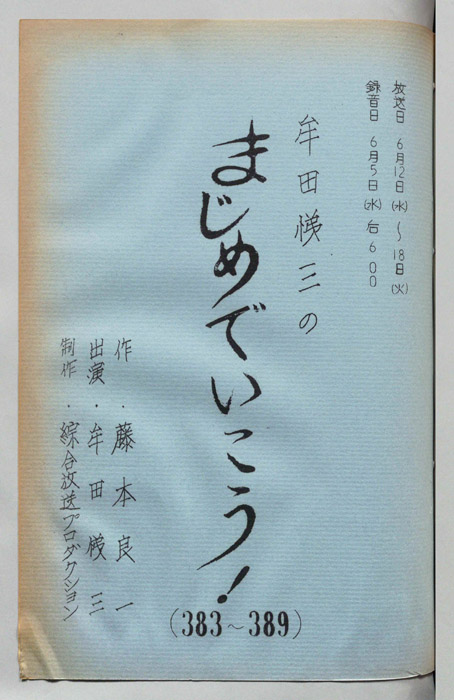 放送日 6月12日(水)〜18日(火)
録音日 6月5日(水)后600
牟田悌三の
まじめでいこう!
(383~389)
作・藤本良一
出演・牟田悌三
制作・綜合放送プロダクション